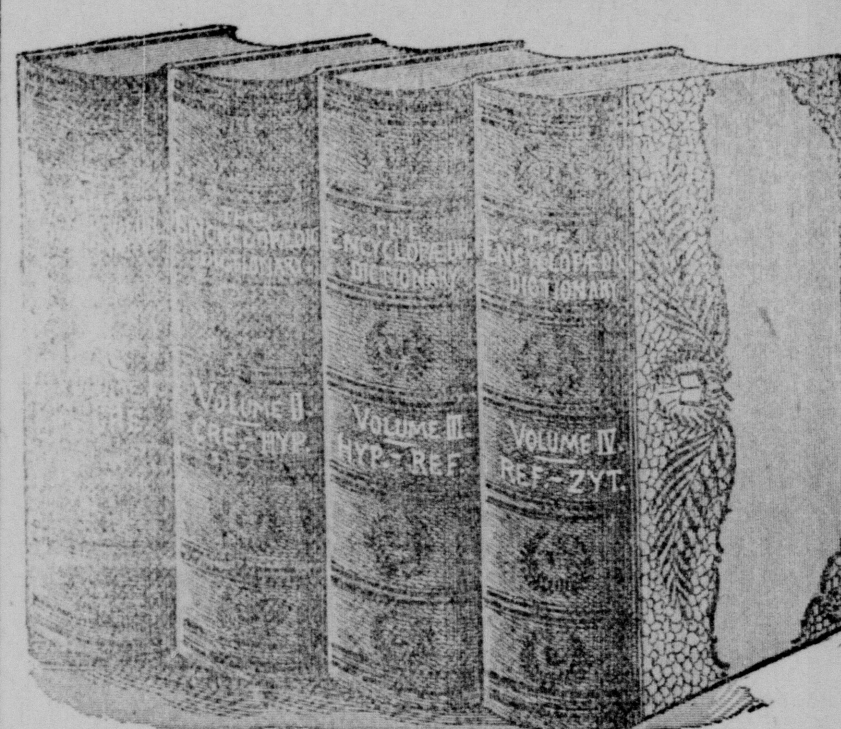 THE
ENCYCLOPÆDIC
DICTIONARY
VOLUME II.
CRE.-HYP.
THE
ENCYCLOPÆDIC
DICTIONARY
VOLUME III.
HYP.-REF.
THE
ENCYCLOPÆDIC
DICTIONARY
VOLUME IV.
REF-ZYT.